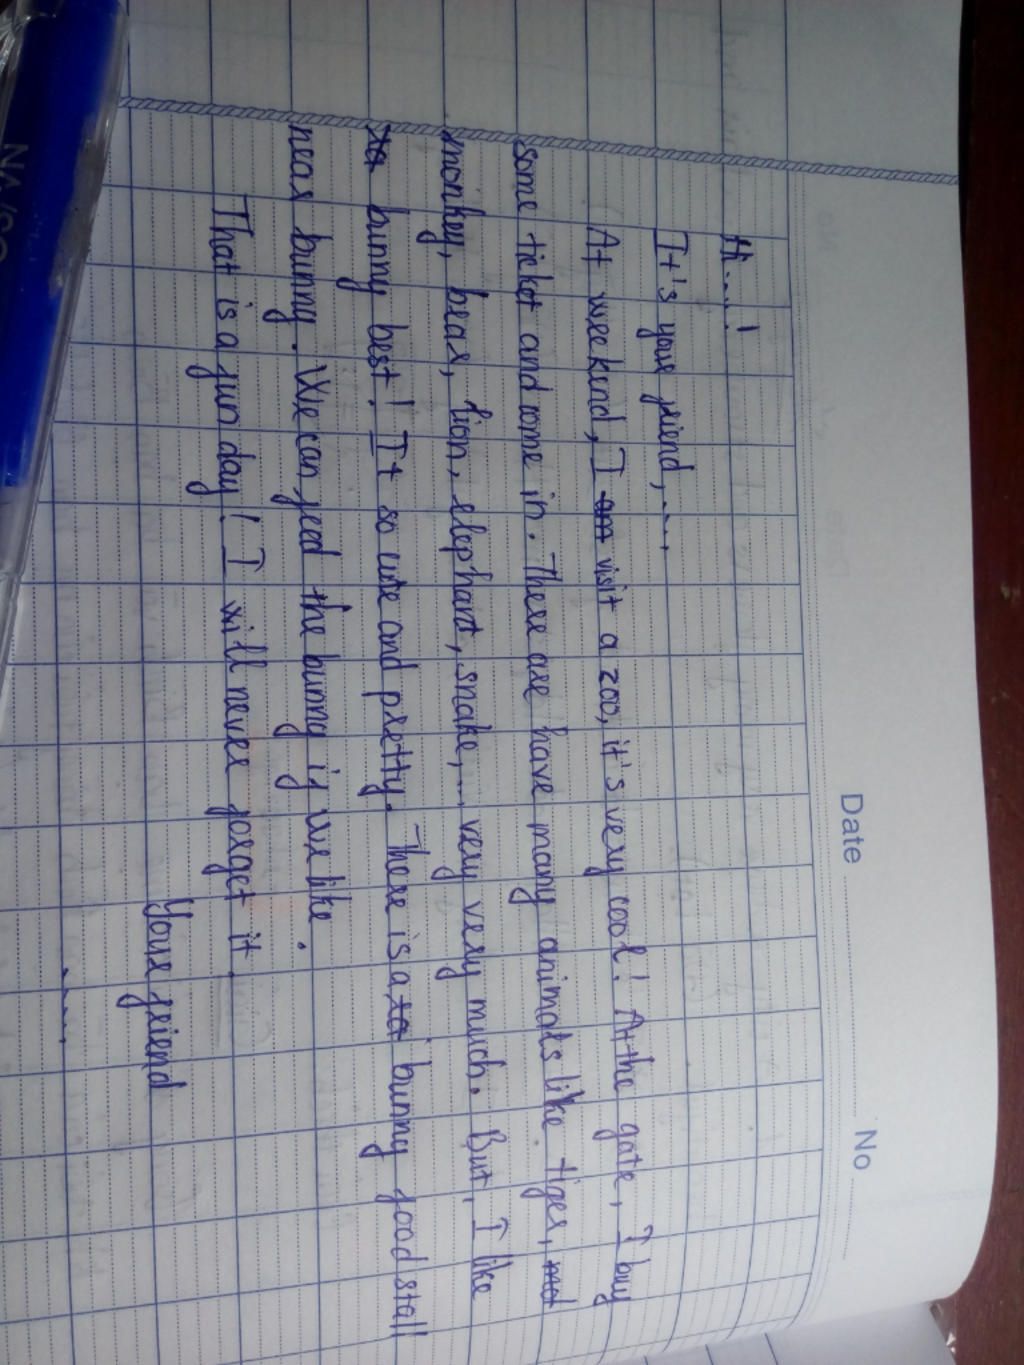 Date No
Hi....!
It's your friend,....
At weekend, I am visit a zoo, it's very cool! At the gate, I buy
some ticket and come in. There are have many animals like tiger,
monkey, bear, lion, elephant, snake,... very very much. But, I like
bunny best! It so cute and pretty. There is a bunny food stall
near bunny. We can feed the bunny if we like.
That is a fun day! I will never forget it.
Your friend
.....